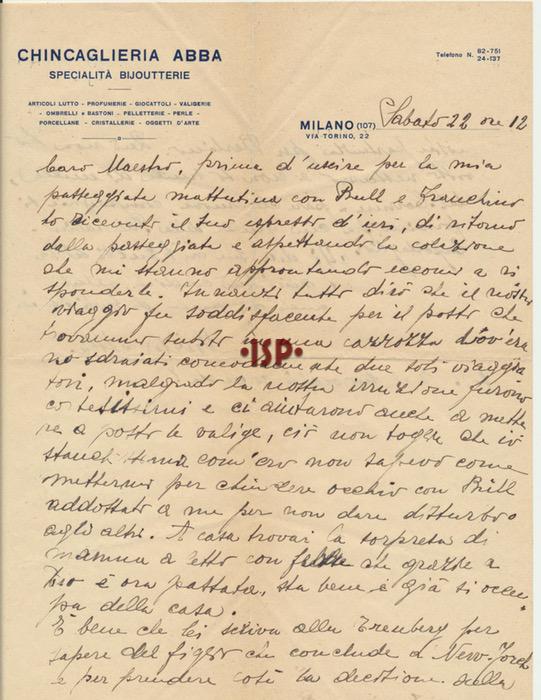 CHINCAGLIERIA ABBA
SPECIALITÀ BIJOUTTERIE
Telefono N. 82-751
24-137
ARTICOLI LUTTO - PROFUMERIE - GIOCATTOLI - VALIGERIE
- OMBRELLI e BASTONI - PELLETTERIE - PERLE -
PORCELLANE - CRISTALLERIE - OGGETTI D'ARTE
MILANO (107)
VIA TORINO, 22
Sabato 22 ore 12
Caro Maestro, prima d'uscire per la mia
passeggiata mattutina con Brill e Franchino
ho ricevuto il suo espresso d'ieri, di ritorno
dalla passeggiata e aspettando la colazione
che mi stanno approntando eccomi a ri
sponderle. Innanzi tutto dirò che il nostro
viaggio fu soddisfacente per il posto che
trovammo subito in una carrozza dov'era
no sdraiati comodamente due soli viaggia
tori, malgrado la nostra irruzione furono
cortesissimi e ci aiutarono anche a mette
re a posto le valige, ciò non toglie che io
stanchissima com'ero non sapevo come
mettermi per chiudere occhio con Brill
addossato a me per non dare disturbo
agli altri. A casa trovai la sorpresa di
mamma a letto con febbre che grazie a
Dio è ora passata, sta bene e già si occu
pa della casa.
È bene che lei scriva alla Trenberg per
sapere del figlio che conclude a New-Jorch
e per prendere così la decisione della
·ISP·